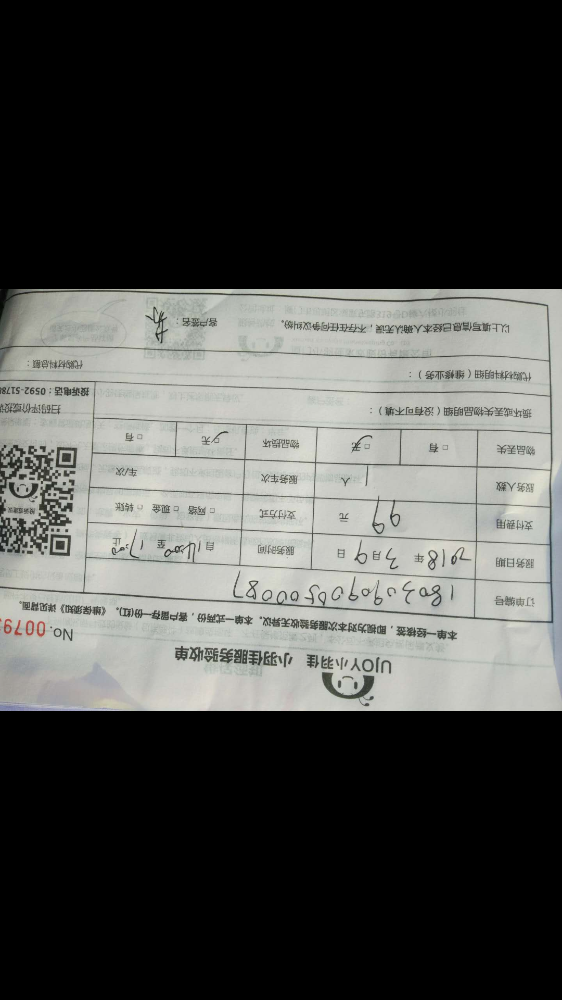 UJOY小羽佳 小羽佳服务验收单
No.0079
本单一经核签,即视为对本次服务验收无异议。本单一式两份,客户留存一份(红)。《维保须知》详见背面。
订单编号 180309090500087
服务日期 2018年3月9日 服务时间 自14:00至17:00止
支付费用 99元 支付方式 □网络 □现金 □转账
服务人数 1人 服务车次 车/次
物品丢失 □有 □无 物品损坏 □无 □有
损坏或丢失物品明细(没有可不填):
代购材料明细(维修业务): 代购材料总额:
以上填写信息已经本人确认无误,不存在任何争议纠纷。 客户签名:
扫码评价或投
投诉电话:0592-5178